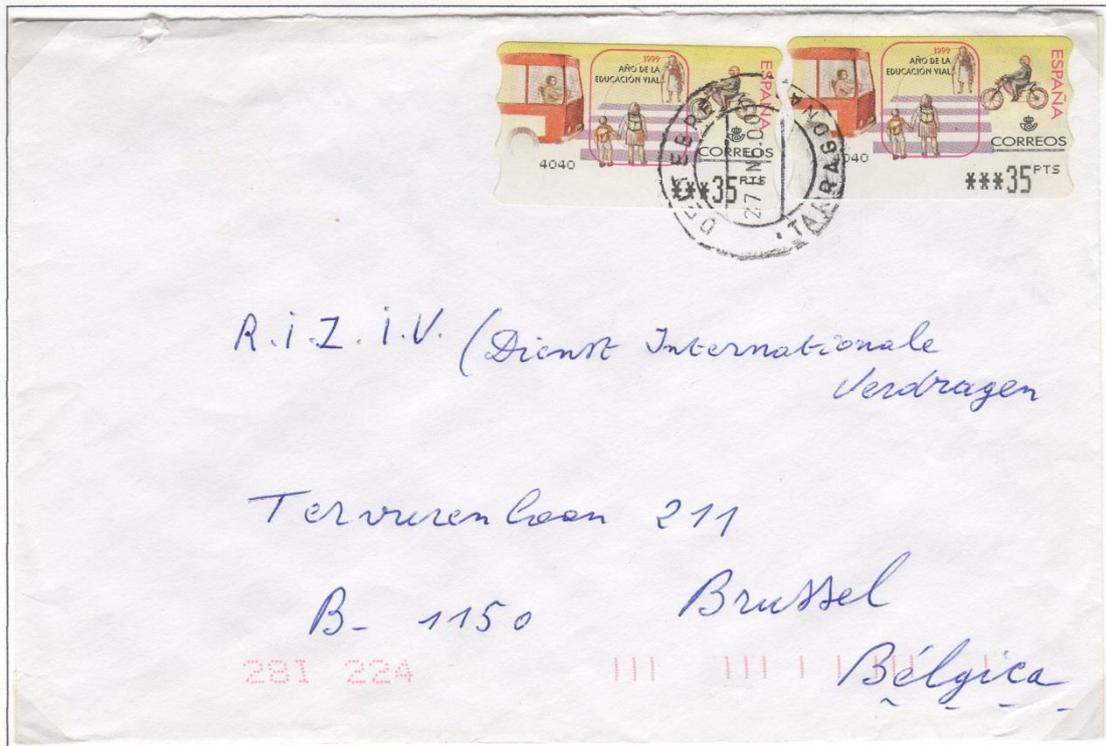 1999
AÑO DE LA
EDUCACIÓN VIAL
ESPAÑA
CORREOS
4040
***35 PTS
1999
AÑO DE LA
EDUCACIÓN VIAL
ESPAÑA
CORREOS
040
***35 PTS
TARRAGONA
R.i.Z.i.V. (Dienst Internationale
Verdragen
Tervurenlaan 211
B- 1150 Brussel
281 224
Bélgica